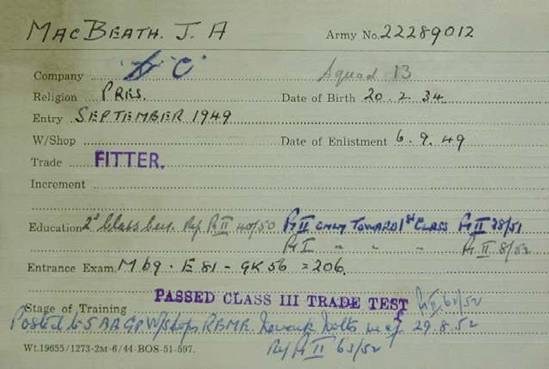 MacBeath. J. A Army No. 22289012
Company C Squad 13
Religion PRES. Date of Birth 20.2.34
Entry SEPTEMBER 1949
W/Shop Date of Enlistment 6.9.49
Trade FITTER.
Increment
Education 2d Class Cert. Pt II 40/50 Pt II only TOWARDS 1st CLASS Pt II 38/51
Pt I " " " Pt II 8/52
Entrance Exam. M69 . E 81 - GK 56 = 206.
PASSED CLASS III TRADE TEST Pt II 62/52
Stage of Training
Posted to 5 AA GP W/Shops REME. Newark Notts wef 29.8.52
Pt II 63/52
Wt.19655/1273-2M-6/44-BOS-51-597.